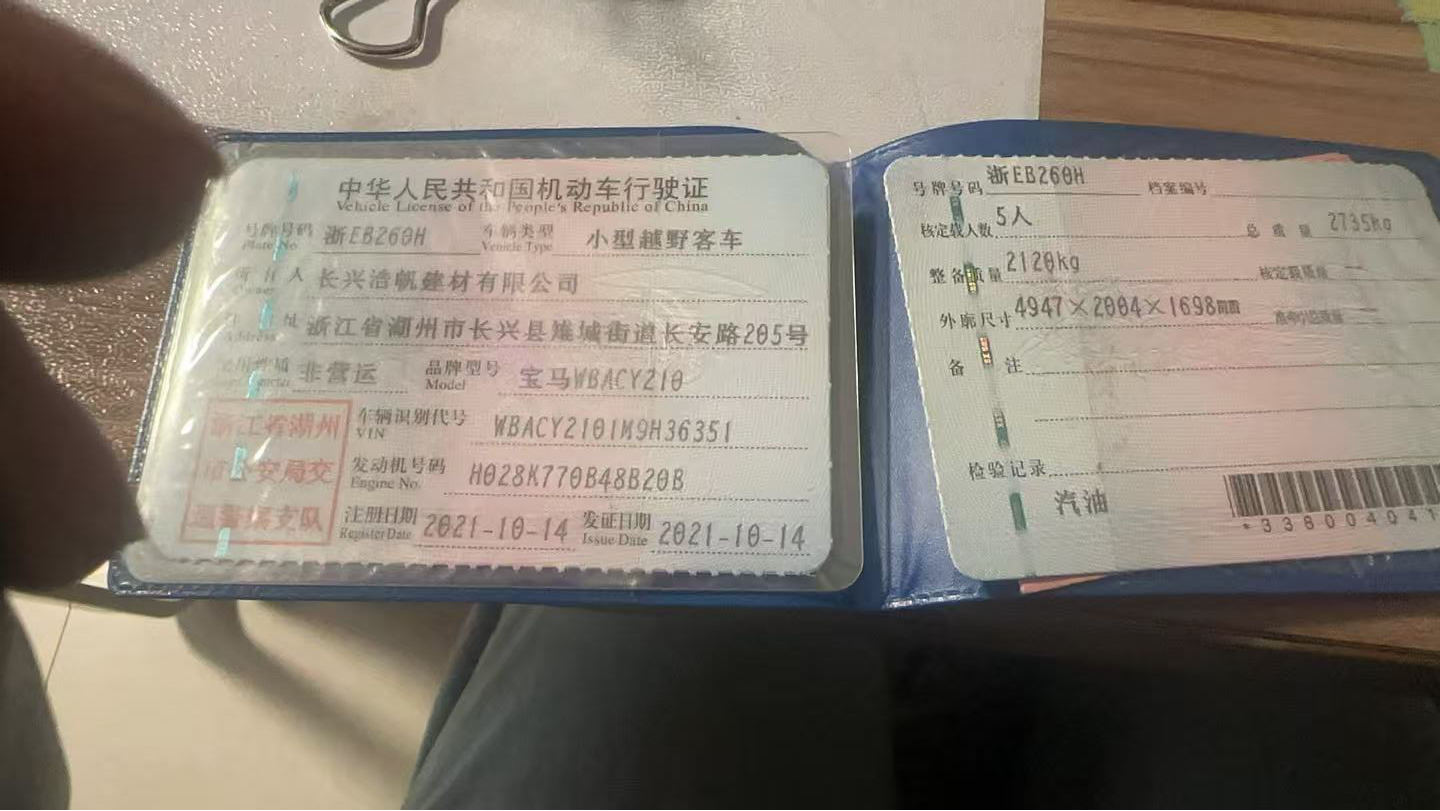 中华人民共和国机动车行驶证
Vehicle License of the People's Republic of China
号牌号码 浙EB260H 车辆类型 小型越野客车
Plate No Vehicle Type
所有人 长兴浩帆建材有限公司
Owner
住址 浙江省湖州市长兴县雉城街道长安路205号
Address
使用性质 非营运 品牌型号 宝马WBACY210
Model
浙江省湖州
市公安局交
通警察支队
车辆识别代号 WBACY2101M9H36351
VIN
发动机号码 H028K770B48B20B
Engine No.
注册日期 2021-10-14 发证日期 2021-10-14
Register Date Issue Date
号牌号码 浙EB260H 档案编号
核定载人数 5人 总质量 2735kg
整备质量 2120kg 核定载质量 —
外廓尺寸 4947×2004×1698mm
备注
检验记录
汽油
*338004041